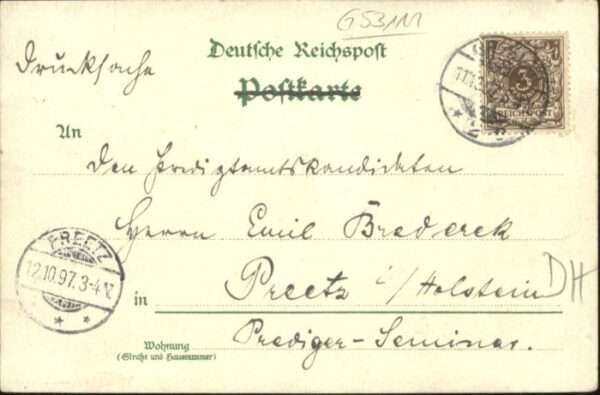 G53111
Deutsche Reichspost
Drucksache
Postkarte
3
REICHSPOST
An
den Predigtamtskandidaten
Herrn Emil Brederek
PREETZ
12.10.97.3-4 N.
in Preetz i/Holstein
DH
Wohnung
(Straße und Hausnummer)
Prediger-Seminar.